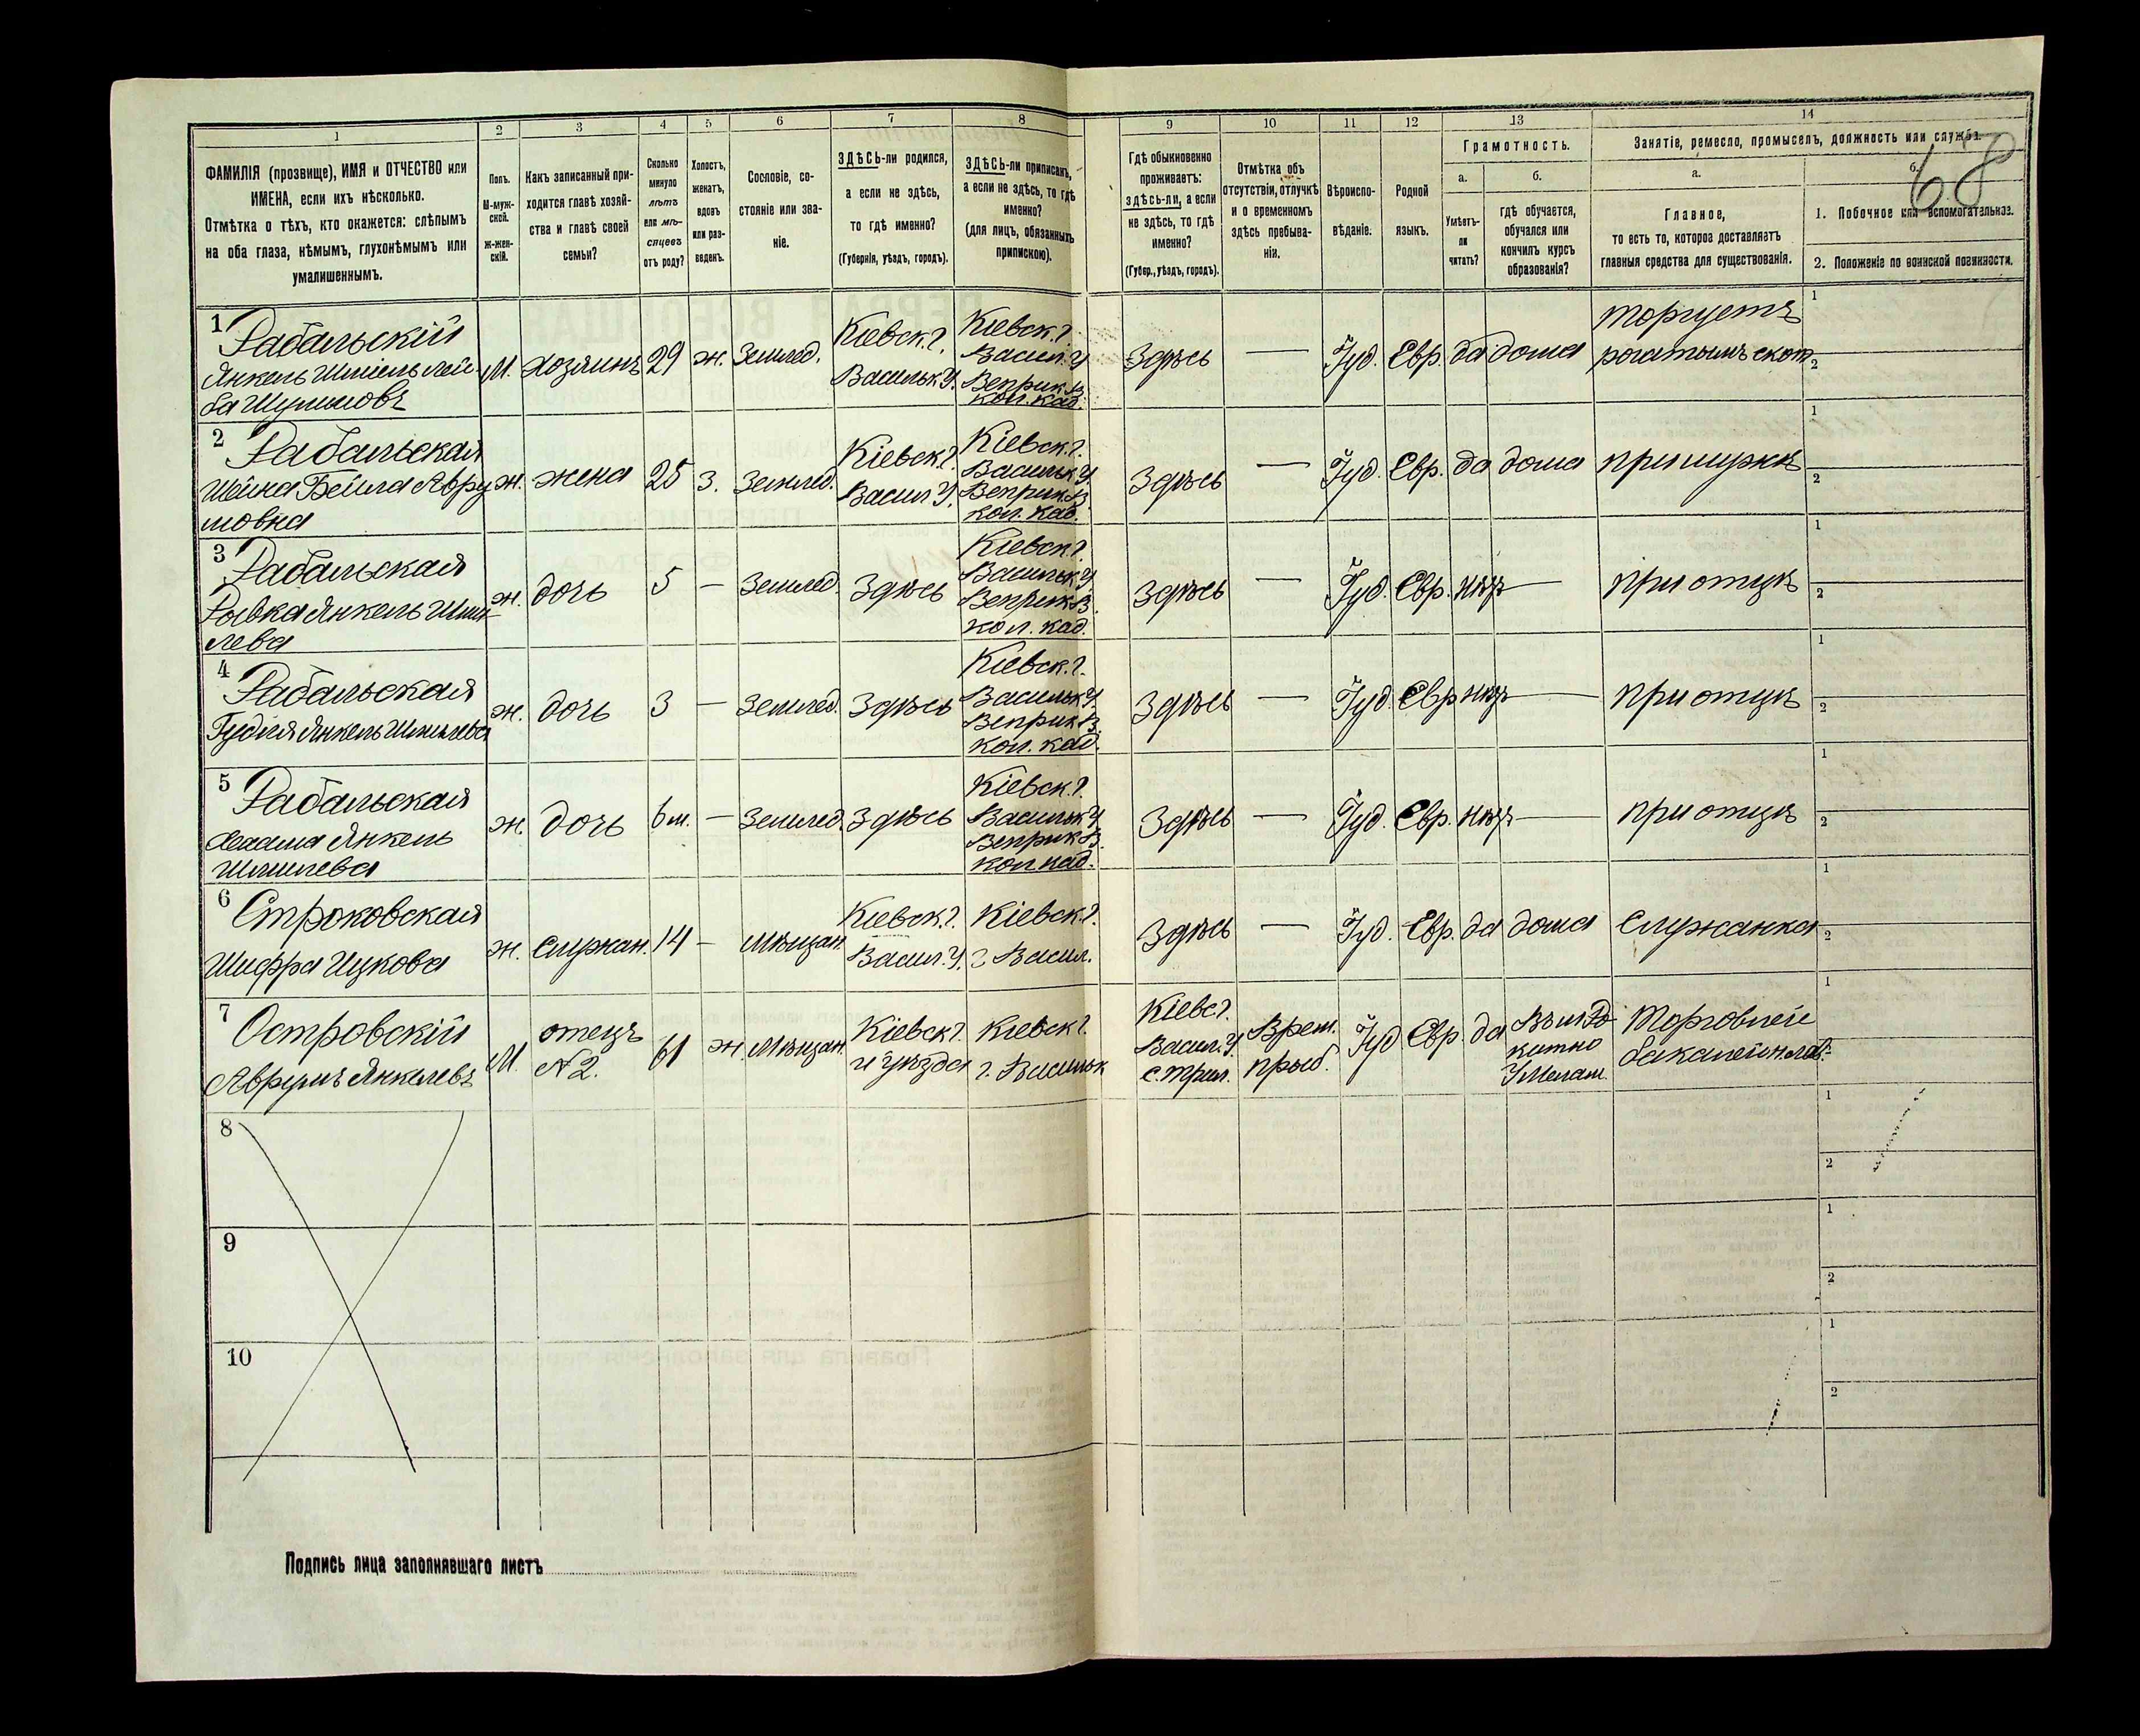 1 2 3 4 5 6 7 8 9 10 11 12 13 14
68
ФАМИЛІЯ (прозвище), ИМЯ и ОТЧЕСТВО или
ИМЕНА, если ихъ нѣсколько.
Отмѣтка о тѣхъ, кто окажется: слѣпымъ
на оба глаза, нѣмымъ, глухонѣмымъ или
умалишеннымъ.
Полъ.
М-муж-
ской.
ж-жен-
скій.
Какъ записанный при-
ходится главѣ хозяй-
ства и главѣ своей
семьи?
Сколько
минуло
лѣтъ
или мѣ-
сяцевъ
отъ роду?
Холостъ,
женатъ,
вдовъ
или раз-
веденъ.
Сословіе, со-
стояніе или зва-
ніе.
ЗДѢСЬ-ли родился,
а если не здѣсь,
то гдѣ именно?
(Губернія, уѣздъ, городъ).
ЗДѢСЬ-ли приписанъ,
а если не здѣсь, то гдѣ
именно?
(для лицъ, обязанныхъ
припискою).
Гдѣ обыкновенно
проживаетъ:
здѣсь-ли, а если
не здѣсь, то гдѣ
именно?
(Губер., уѣздъ, городъ).
Отмѣтка объ
отсутствіи, отлучкѣ
и о временномъ
здѣсь пребыва-
ніи.
Вѣроиспо-
вѣданіе.
Родной
языкъ.
Грамотность.
а.
Умѣетъ-
ли
читать?
б.
гдѣ обучается,
обучался или
кончилъ курсъ
образованія?
Занятіе, ремесло, промыселъ, должность или служба.
а.
Главное,
то есть то, которое доставляетъ
главныя средства для существованія.
б.
1. Побочное или вспомогательное.
2. Положеніе по воинской повинности.
1 Рабальскій
Янкель Шміель Лей
ба Шулимовъ
М. хозяинъ 29 ж. Землед.
Кіевск. г.
Васильк. У.
Кіевск. г.
Васил. У
Веприк. В
кол. кад.
Здѣсь — Іуд. Евр. да дома
торгуетъ
рогатымъ скот.
1
2
2 Рабальская
Шейна Бейла Авру
мовна
ж. жена 25 з. Землед.
Кіевск. г.
Васил У.
Кіевск. г.
Васильк. У
Веприк. В
кол. кад.
Здѣсь — Іуд. Евр. да дома при мужѣ
1
2
3 Рабальская
Рывка Янкель Шми-
лева
ж. дочь 5 — Землед. Здѣсь
Кіевск. г.
Васильк. У
Веприк. В.
кол. кад.
Здѣсь — Іуд. Евр. нѣтъ — при отцѣ
1
2
4 Рабальская
Янкель Шмилева
ж. дочь 3 — Землед. Здѣсь
Кіевск. г.
Васильк. У.
Веприк. В.
кол. кад.
Здѣсь — Іуд. Евр. нѣтъ — при отцѣ
1
2
5 Рабальская
Янкель
Шмилева
ж. дочь 6 м. — Землед. Здѣсь
Кіевск. г.
Васильк. У
Веприк. В.
кол кад.
Здѣсь — Іуд. Евр. нѣтъ — при отцѣ
1
2
6 Строковская
Шифра Ицкова
ж. Служан. 14 — Мѣщан.
Кіевск. г.
Васил. У.
Кіевск. г.
г Васил.
Здѣсь — Іуд. Евр. да дома Служанка
1
2
7 Островскій
Аврумъ Янкелевъ
М.
отецъ
N 2.
61 ж. Мѣщан.
Кіевск г.
и уѣзда
Кіевск г.
г. Васильк
Кіевс г.
Васил. У.
Врем.
прыб.
Іуд Евр. да
Въ м Ро
китно
У Мелам.
Торговлей
1
8
1
2
9
1
2
10
1
2
Подпись лица заполнявшаго листъ